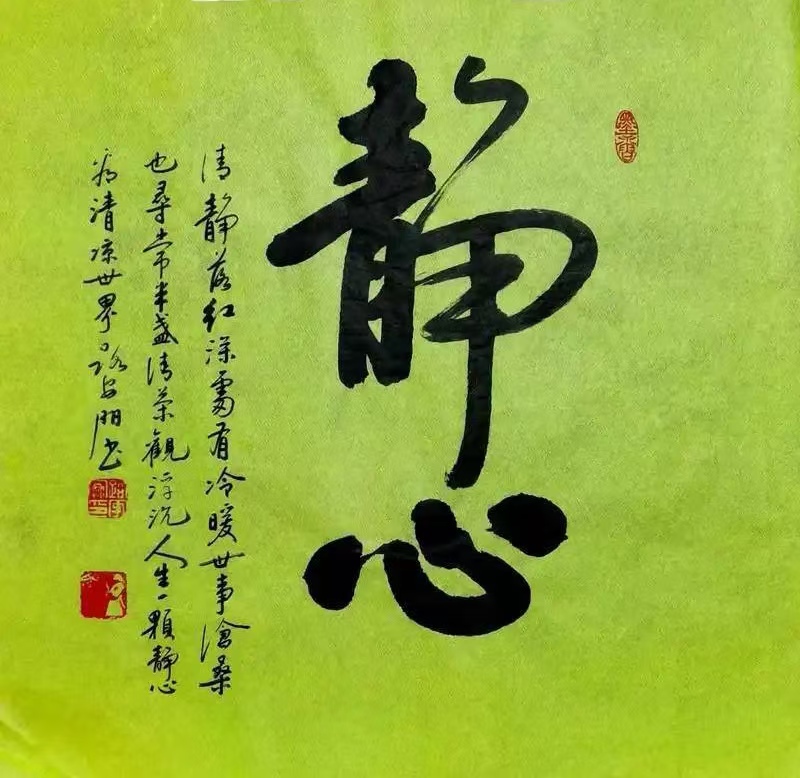 静心
清静落红深处有冷暖世事沧桑
也尋常半盏清茶觀浮沉人生一颗静心
看清凉世界路安朋书